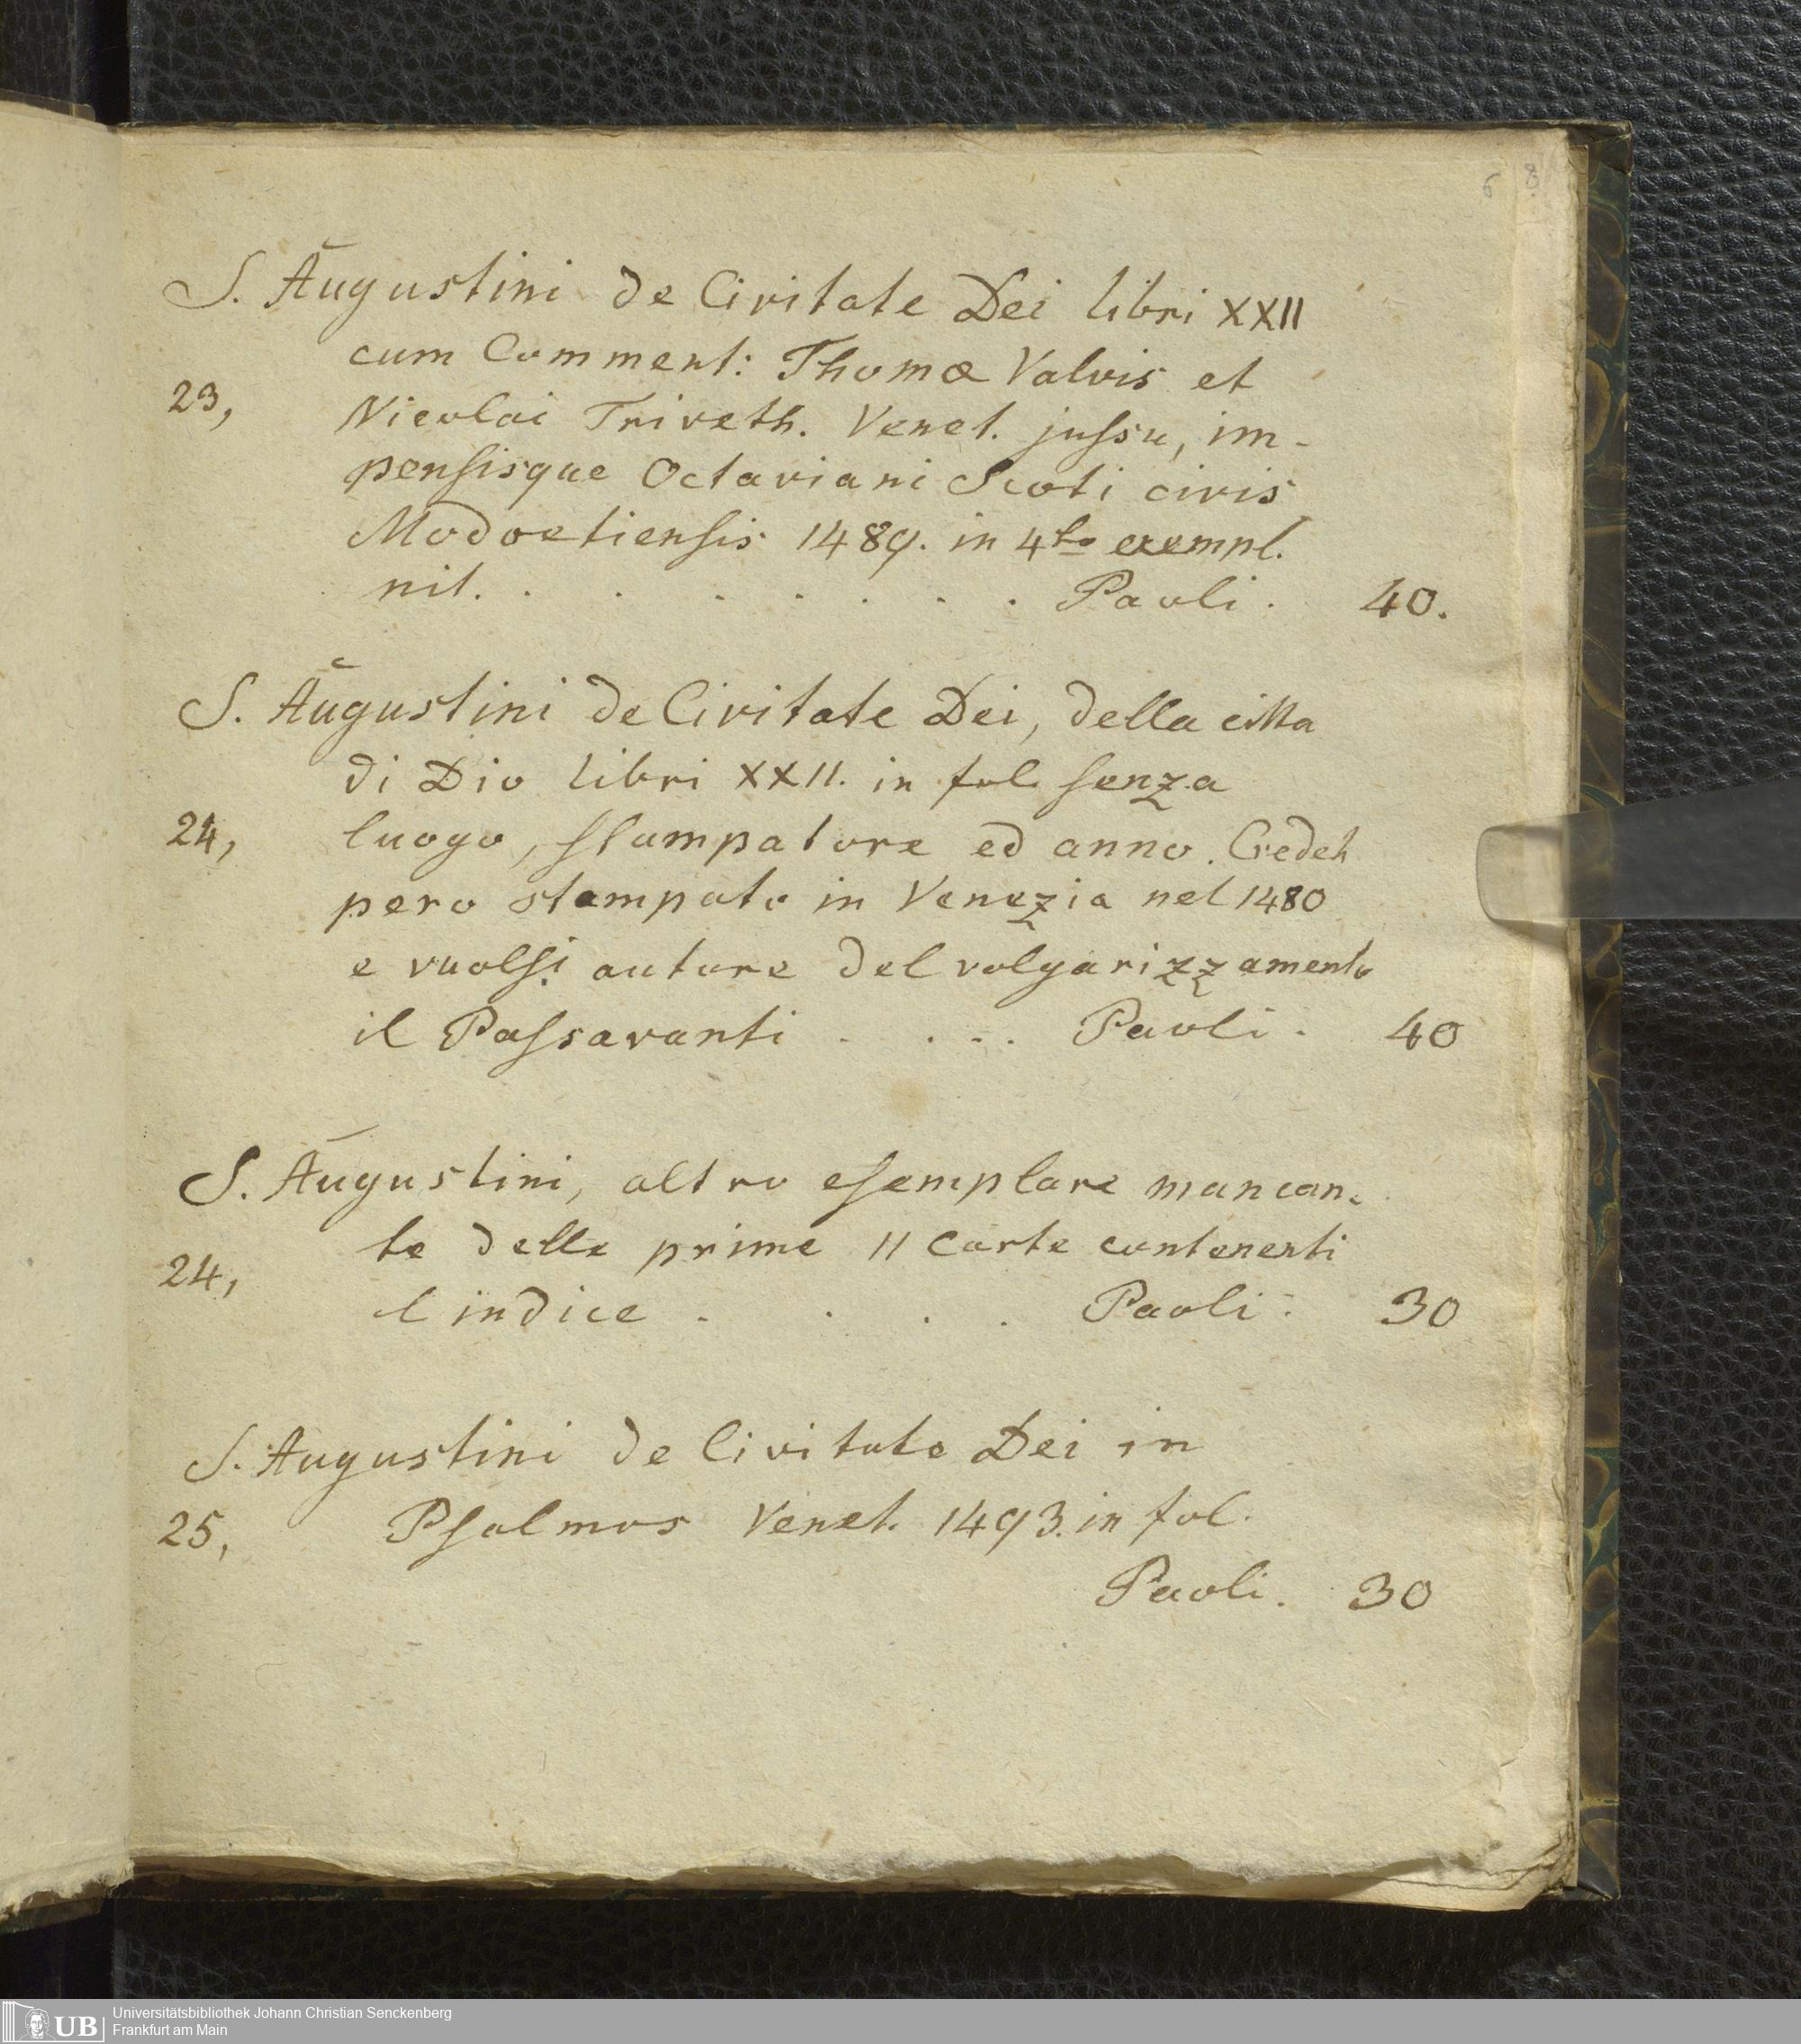 6 8
S. Augustini de Civitate Dei libri XXII
cum Comment: Thomæ Valois et
23, Nicolai Triveth. Venet. jussu, im-
pensisque Octaviani Scoti civis
Modoetiensis 1489. in 4to exempl.
nit. . . . . . . . Paoli. 40.
S. Augustini de Civitate Dei, della citta
di Dio libri XXII. in fol. senza
24, luogo, stampatore ed anno. Credesi
pero stampato in Venezia nel 1480
e vuolsi autore del volgarizzamento
il Passavanti . . . . Paoli. 40
S. Augustini, altro esemplare mancan-
24, te delle prime 11 carte contenenti
l indice . . . . Paoli. 30
S. Augustini de Civitate Dei in
25, Psalmos Venet. 1493. in fol.
Paoli. 30
UB Universitätsbibliothek Johann Christian Senckenberg
Frankfurt am Main